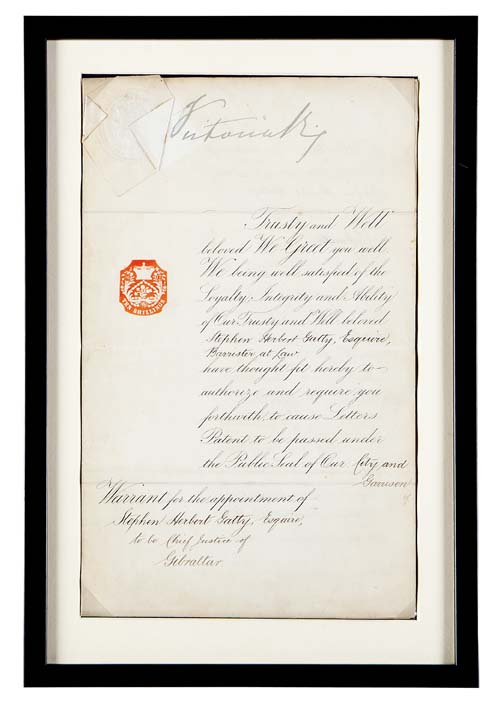 Victoria R
TEN SHILLINGS
Trusty and Well
beloved We Greet you well
We being well satisfied of the
Loyalty, Integrity and Ability
of Our Trusty and Well beloved
Stephen Herbert Gatty, Esquire,
Barrister at Law
have thought fit hereby to
authorize and require you
forthwith, to cause Letters
Patent to be passed under
the Public Seal of Our City and
Garrison
of
Warrant for the appointment of
Stephen Herbert Gatty, Esquire,
to be Chief Justice of
Gibraltar